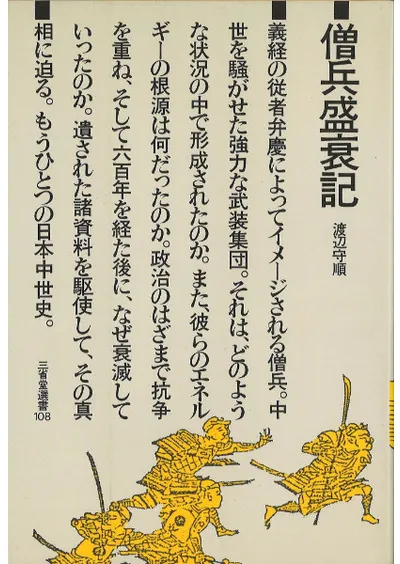 僧兵盛衰記
渡辺守順
義経の従者弁慶によってイメージされる僧兵。中
世を騒がせた強力な武装集団。それは、どのよう
な状況の中で形成されたのか。また、彼らのエネル
ギーの根源は何だったのか。政治のはざまで抗争
を重ね、そして六百年を経た後に、なぜ衰滅して
いったのか。遺された諸資料を駆使して、その真
相に迫る。もうひとつの日本中世史。
三省堂選書
108